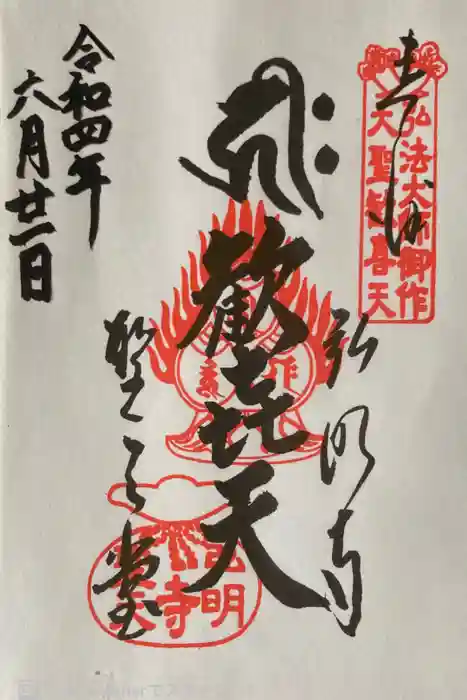 奉拝
弘法大師御作
大聖歓喜天
弘明寺
歓喜天
聖天堂
弘明寺
令和四年
六月廿一日